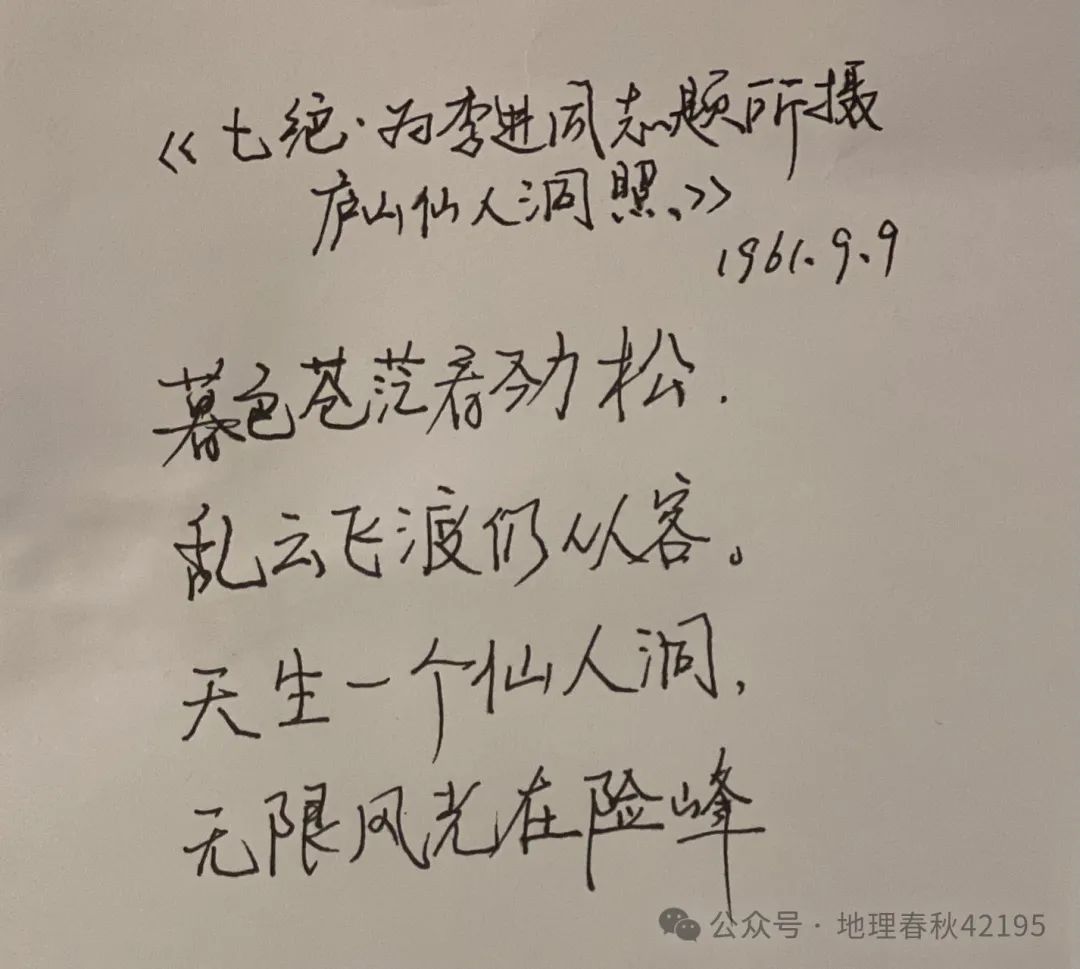 《七绝·为李进同志题所摄
庐山仙人洞照》
1961.9.9
暮色苍茫看劲松.
乱云飞渡仍从容。
天生一个仙人洞,
无限风光在险峰
公众号·地理春秋42195